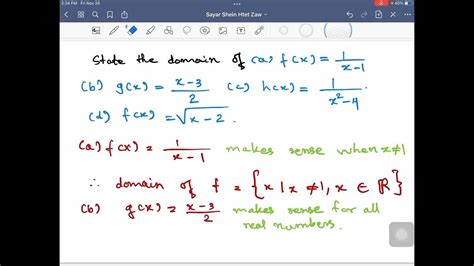 2:34 PM Fri Nov 25
Sayar Shein Htet Zaw
40%
State the domain of (a) f(x) = 1/(x-1)
(b) g(x) = (x-3)/2 (c) h(x) = 1/(x²-4).
(d) f(x) = √(x-2).
(a) f(x) = 1/(x-1) makes sense when x≠1
∴ domain of f = {x | x ≠ 1, x ∈ ℝ}
(b) g(x) = (x-3)/2 makes sense for all
real numbers.